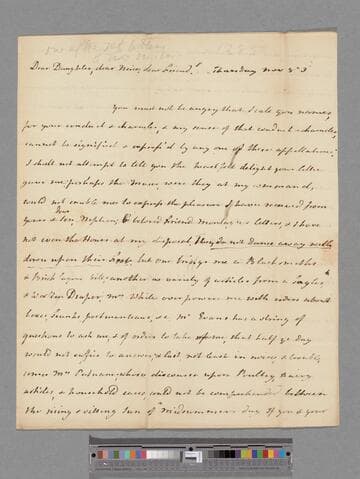 Dear Daughter, dear Neice, dear Friend. Thursday Nov 3d
You must not be angry that I call you names,
for your conduct & character, & my sense of that conduct & character
cannot be signified & express'd by any one of these appellations.
I shall not attempt to tell you the heartfelt delight your letter
gave me; perhaps the Muses were they at my command,
could not enable me to express the pleasure of having received from
your & son, Nephew, & beloved Friend Montagu's letters, & I have
not even the Hours at my disposal, they do not dance away with
down upon their feet, but one brings me a Blacksmiths
& Brick layers bill, another a variety of articles from a Taylor
& Woolen Draper, Mrs White over powers me with orders about
boxes, trunks, portmanteaus, &c. Mr Evans has a string of
questions to ask me, & of orders to take from me, that half ye day
would not suffice to answer, & last not least in noise, & trouble,
comes Mrs Putnam, whose discourses upon Poultry, Dairy
articles, & household cares, could not be comprehended between
the rising & setting sun of Midsummers day. If you & your